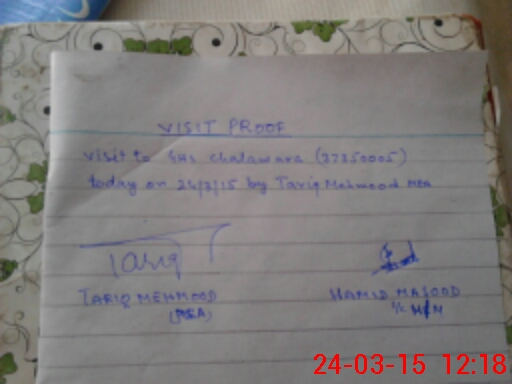 VISIT PROOF
visit to GHS Chalawara (37350005)
today on 24/3/15 by Tariq Mehmood MEA
Tariq
TARIQ MEHMOOD
(MEA)
HAMID MASOOD
I/C H/M
24-03-15 12:18